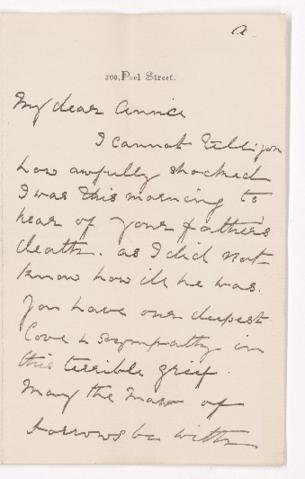 a
200, Peel Street.
My dear Annie
I cannot tell you
how awfully shocked
I was this morning to
hear of your father's
death. as I did not
know how ill he was.
You have our deepest
Love & sympathy in
this terrible grief.
May the Man of
Sorrows be with